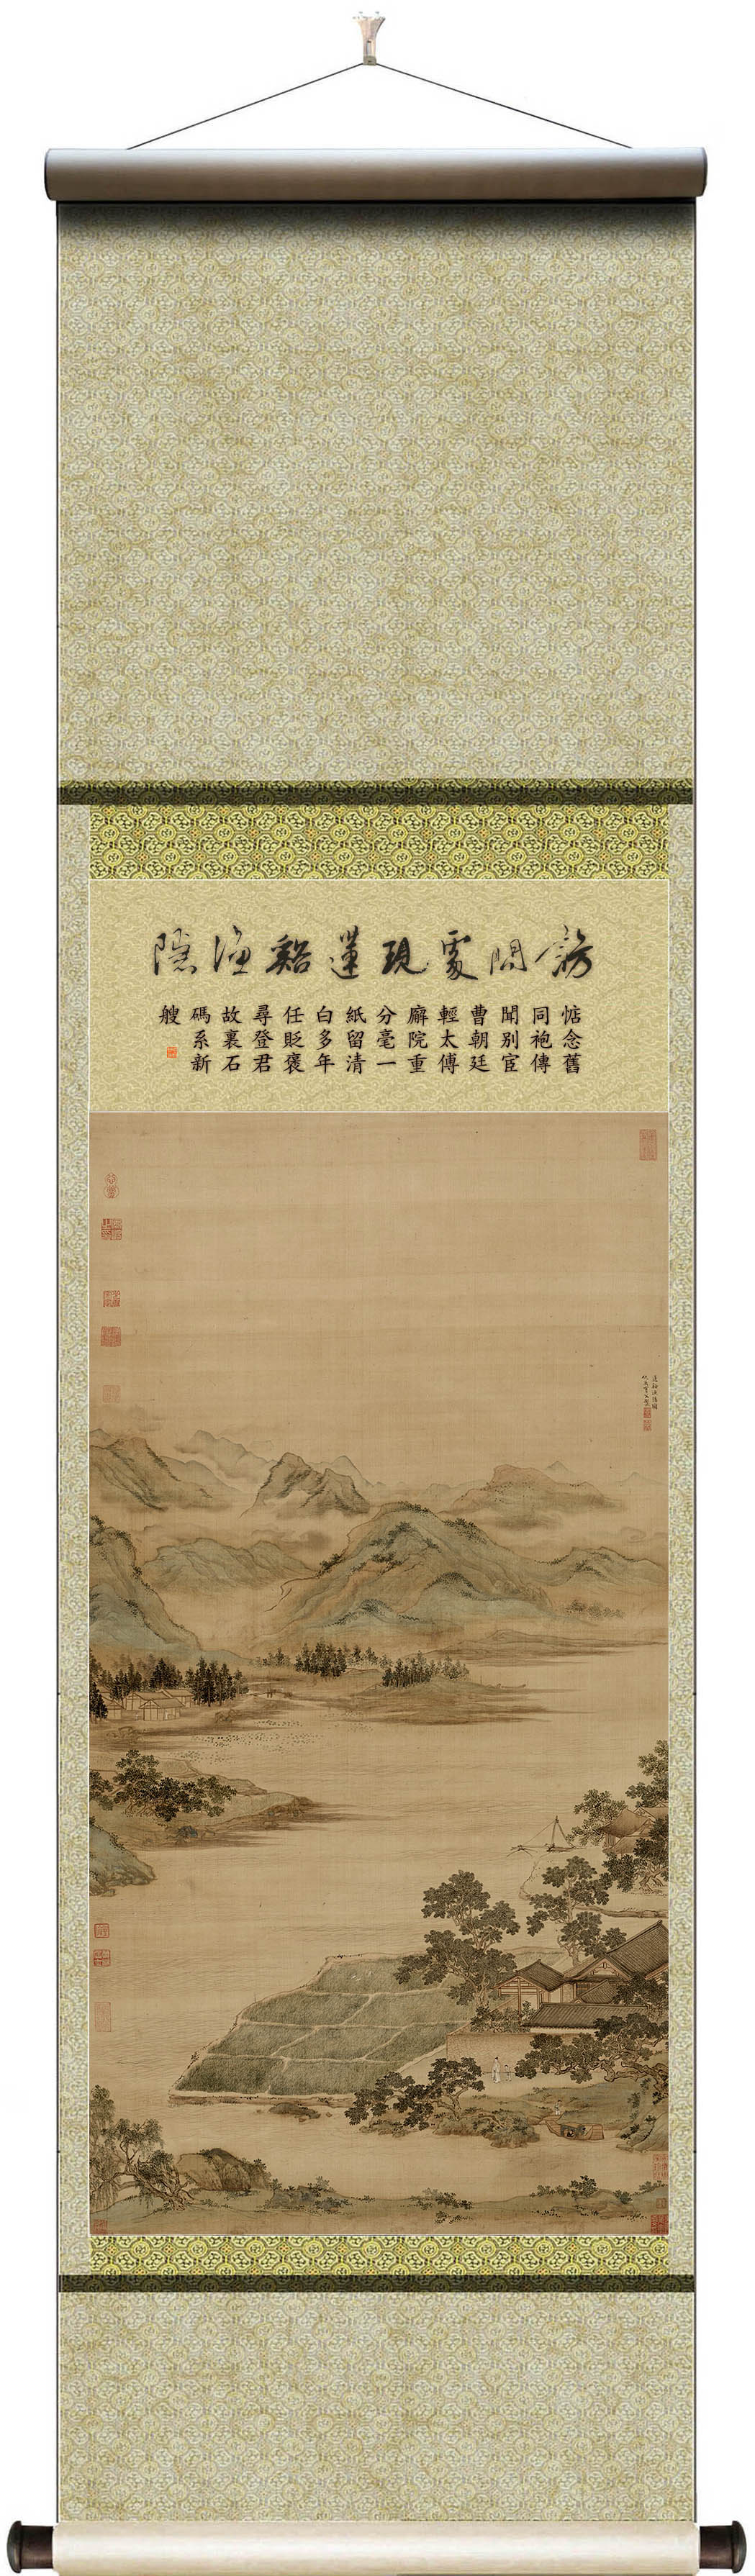 訪閒處現蓮谿漁隱
惦念舊
同袍傳
聞別宦
曹朝廷
輕太傅
廨院重
分毫一
紙留清
白多年
任貶褒
尋登君
故裏石
碼系新
艘